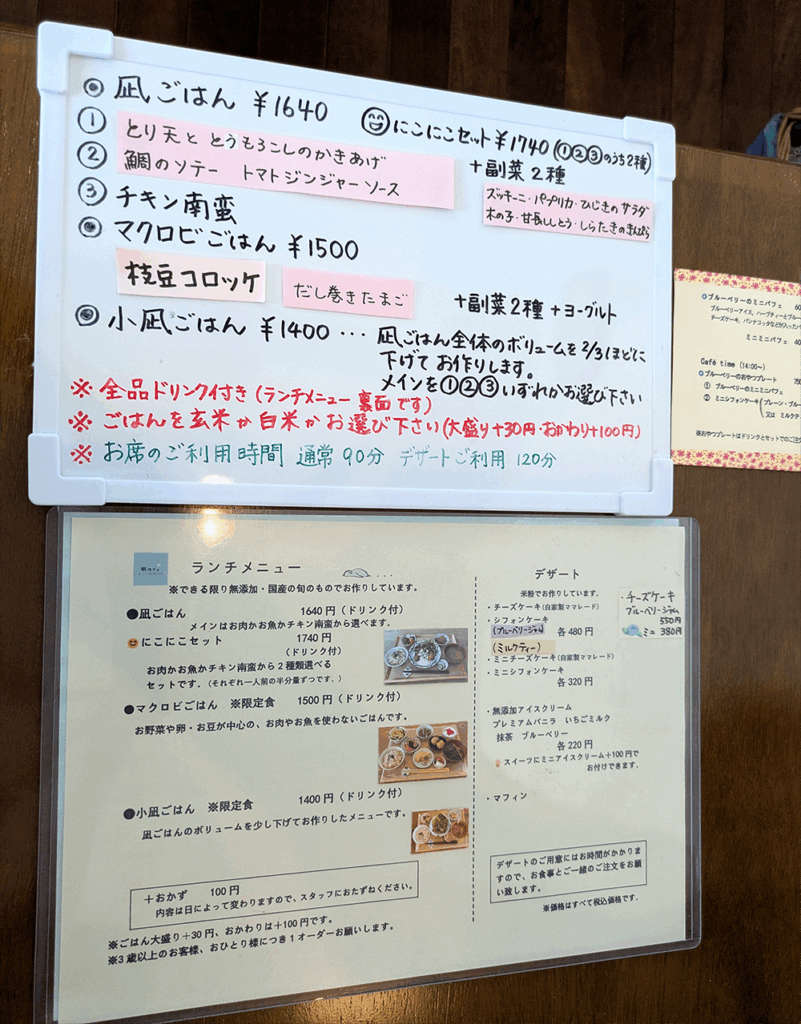 凪ごはん ¥1640
にこにこセット ¥1740 (①②③のうち2種)
① とり天と とうもろこしのかきあげ
② 鯛のソテー トマトジンジャーソース
③ チキン南蛮
+副菜2種
ズッキーニ・パプリカ・ひじきのサラダ
木の子・甘長ししとう・しらたきのきんぴら
マクロビごはん ¥1500
枝豆コロッケ
だし巻きたまご
+副菜2種 +ヨーグルト
小凪ごはん ¥1400 … 凪ごはん全体のボリュームを2/3ほどに
下げてお作りします。
メインを①②③いずれかお選び下さい
※ 全品ドリンク付き (ランチメニュー裏面です)
※ ごはんを玄米か白米かお選び下さい (大盛り+30円・おかわり+100円)
※ お席のご利用時間 通常90分 デザートご利用 120分
◎ブルーベリーのミニパフェ
ブルーベリーアイス、ハーブティーとブルー
チーズケーキ、パンナコッタなどが入ったパ
ミニミニパフェ
Café time (14:00~)
◎ブルーベリーのおやつプレート
① ブルーベリーのミニミニパフェ
② ミニシフォンケーキ(プレーン・ブルー
又は ミルクテ
※おやつプレートはドリンクとセットでのご注文
ランチメニュー
※できる限り無添加・国産の旬のものでお作りしています。
●凪ごはん 1640円(ドリンク付)
メインはお肉かお魚かチキン南蛮から選べます。
にこにこセット 1740円
(ドリンク付)
お肉かお魚かチキン南蛮から2種類選べる
セットです。(それぞれ一人前の半分量ずつです。)
●マクロビごはん ※限定食 1500円(ドリンク付)
お野菜や卵・お豆が中心の、お肉やお魚を使わないごはんです。
●小凪ごはん ※限定食 1400円(ドリンク付)
凪ごはんのボリュームを少し下げてお作りしたメニューです。
+おかず 100円
内容は日によって変わりますので、スタッフにおたずねください。
※ごはん大盛り+30円、おかわりは+100円です。
※3歳以上のお客様、おひとり様につき1オーダーお願いします。
デザート
米粉でお作りしています。
・チーズケーキ(自家製ママレード)
・シフォンケーキ
(ブルーベリージャム) 各480円
(ミルクティー)
・ミニチーズケーキ(自家製ママレード)
・ミニシフォンケーキ
各320円
・チーズケーキ
ブルーベリージャム
550円
ミニ 380円
・無添加アイスクリーム
プレミアムバニラ いちごミルク
抹茶 ブルーベリー
各220円
スイーツにミニアイスクリーム+100円で
お付けできます。
・マフィン
デザートのご用意にはお時間がかかりま
すので、お食事とご一緒のご注文をお願
い致します。
※価格はすべて税込価格です。